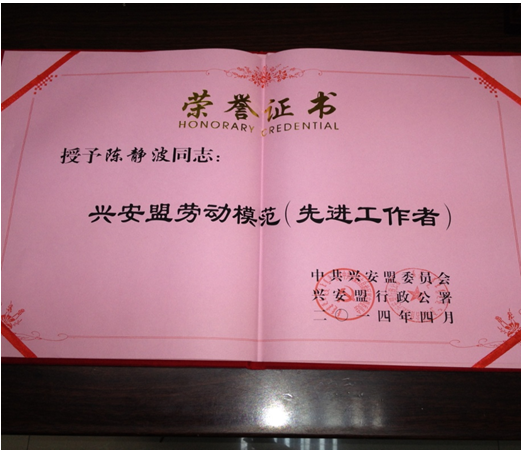 荣誉证书
HONORARY CREDENTIAL
授予陈静波同志：
兴安盟劳动模范（先进工作者）
中共兴安盟委员会
兴安盟行政公署
二〇一四年四月